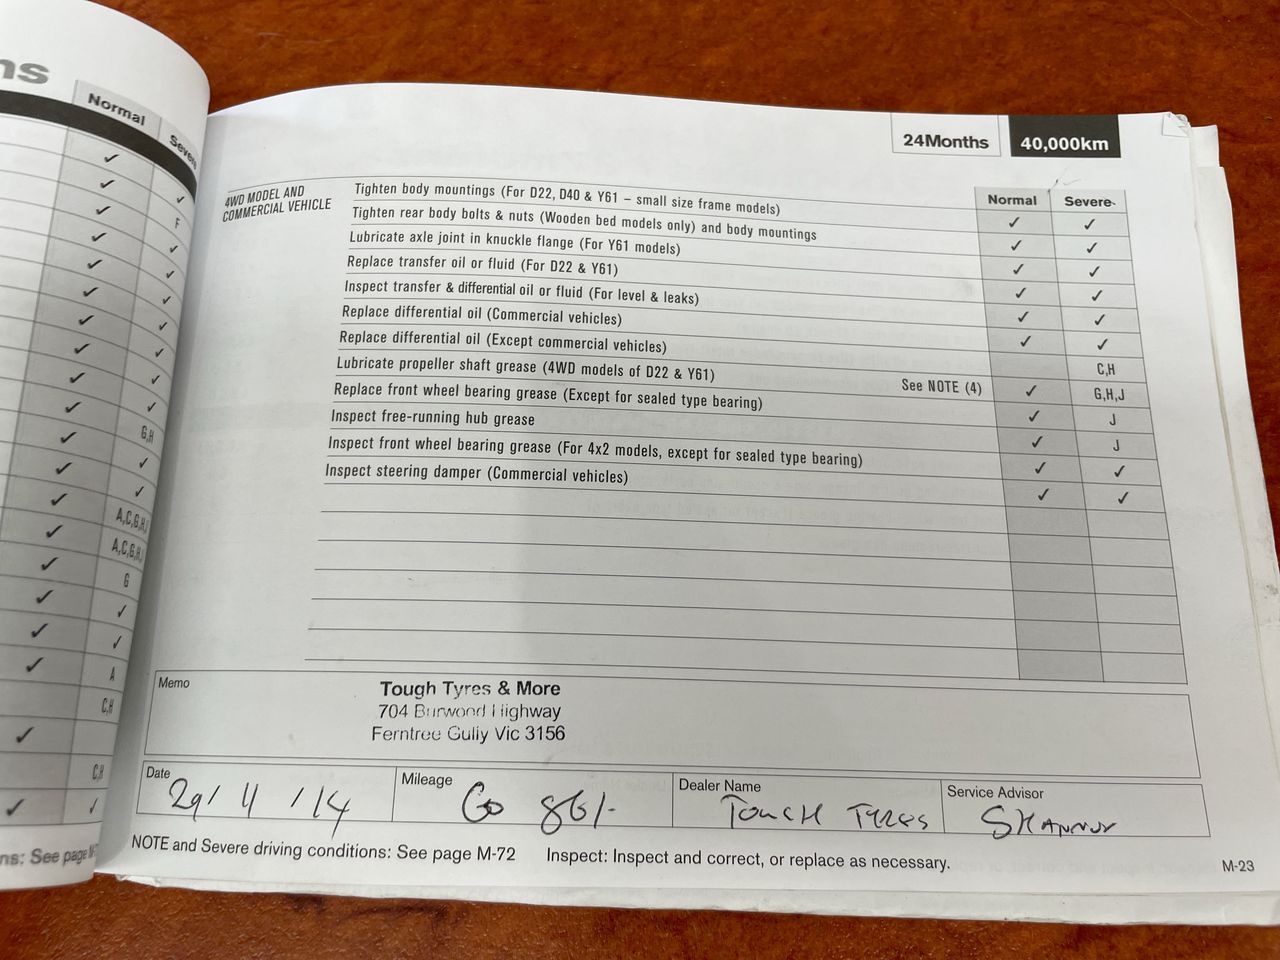 ns
Normal
Severe
✓
✓ ✓
✓ F
✓ ✓
✓ ✓
✓ ✓
✓ ✓
✓ ✓
✓ ✓
✓ ✓
✓ G,H
✓ ✓
✓ ✓
✓ A,C,G,H,
✓ A,C,G,H,
✓ G
✓ ✓
✓ ✓
✓ A
C,H
✓
C,H
✓ ✓
ns: See page M-7
24Months 40,000km
4WD MODEL AND
COMMERCIAL VEHICLE
Normal Severe
Tighten body mountings (For D22, D40 & Y61 – small size frame models) ✓ ✓
Tighten rear body bolts & nuts (Wooden bed models only) and body mountings ✓ ✓
Lubricate axle joint in knuckle flange (For Y61 models) ✓ ✓
Replace transfer oil or fluid (For D22 & Y61) ✓ ✓
Inspect transfer & differential oil or fluid (For level & leaks) ✓ ✓
Replace differential oil (Commercial vehicles) ✓ ✓
Replace differential oil (Except commercial vehicles) C,H
Lubricate propeller shaft grease (4WD models of D22 & Y61) See NOTE (4) ✓ G,H,J
Replace front wheel bearing grease (Except for sealed type bearing) ✓ J
Inspect free-running hub grease ✓ J
Inspect front wheel bearing grease (For 4x2 models, except for sealed type bearing) ✓ ✓
Inspect steering damper (Commercial vehicles) ✓ ✓
Memo
Tough Tyres & More
704 Burwood Highway
Ferntree Gully Vic 3156
Date 29/4/14
Mileage 60 861-
Dealer Name Tough Tyres
Service Advisor
NOTE and Severe driving conditions: See page M-72 Inspect: Inspect and correct, or replace as necessary.
M-23